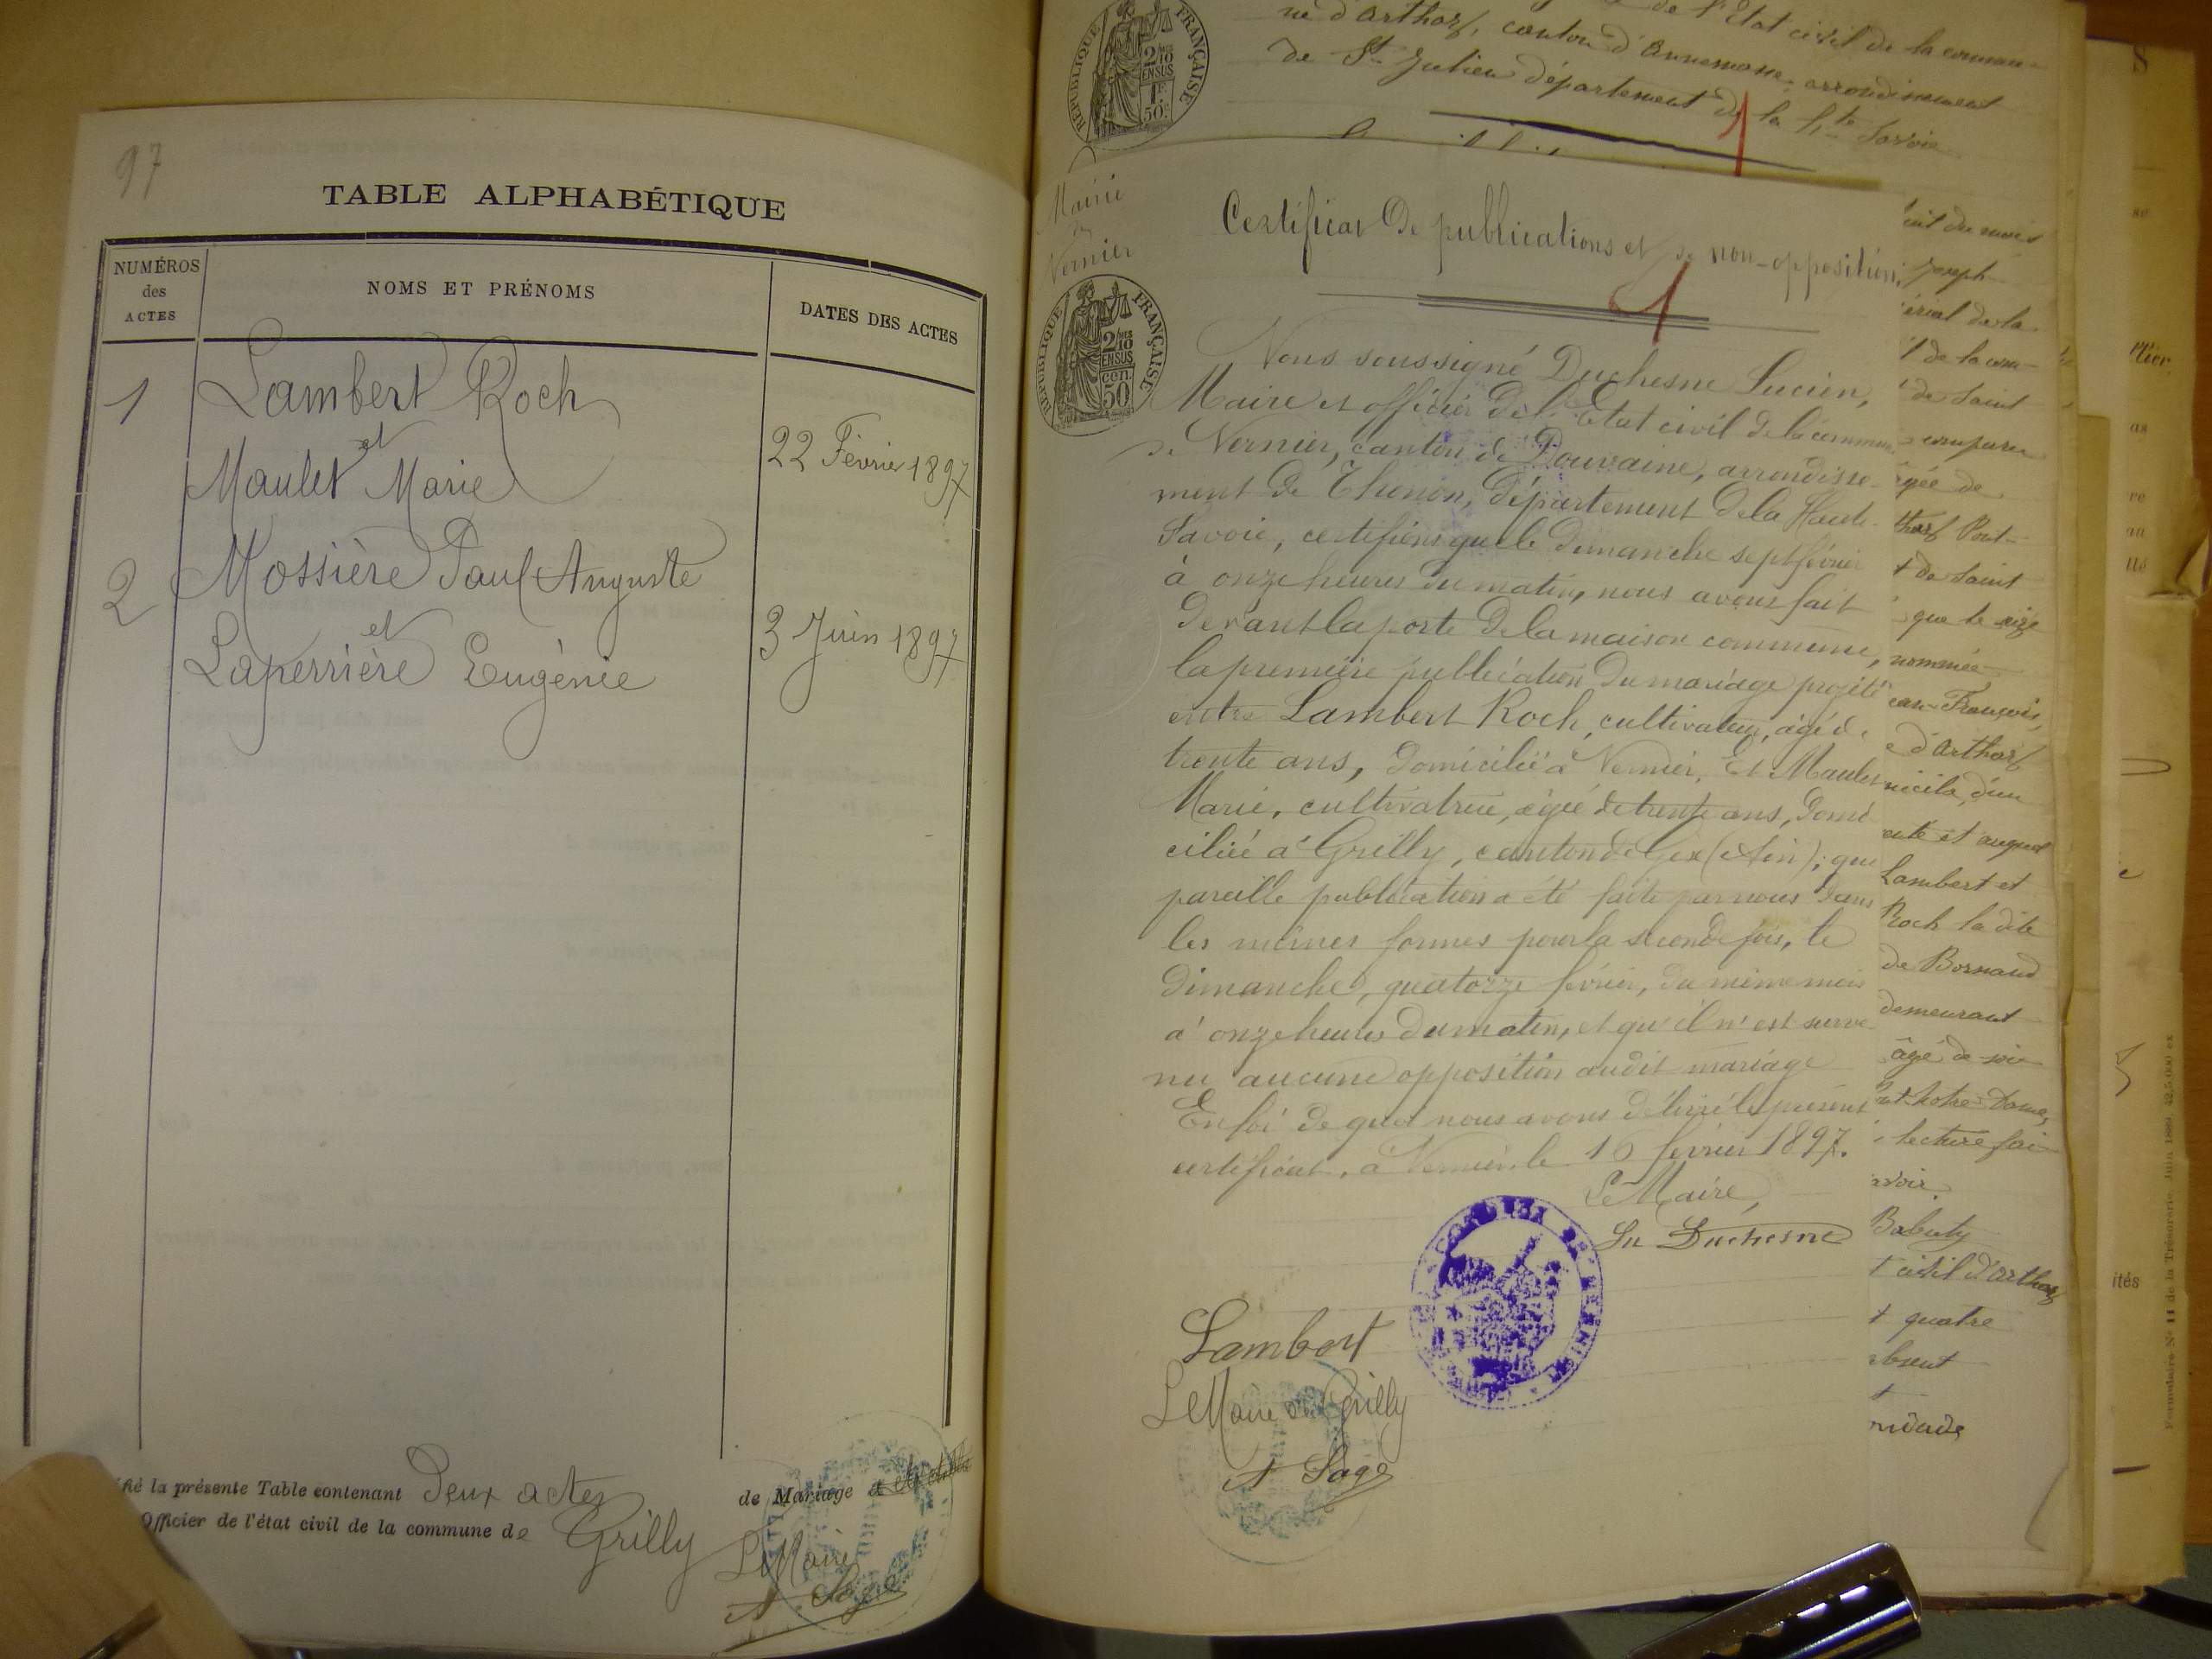 97
TABLE ALPHABÉTIQUE
NUMÉROS
des
ACTES
NOMS ET PRÉNOMS
DATES DES ACTES
1
Lambert Roch
et
Maulet Marie
22 Février 1897
2
Mossière Paul Auguste
et
Laperrière Eugénie
3 Juin 1897
fié la présente Table contenant Deux actes de Mariage
Officier de l'état civil de la commune de Grilly
Le Maire
A Sage
RÉPUBLIQUE FRANÇAISE
2/10 EN SUS
1F 50c
de l'Etat civil de la commu-
ne d'Arthaz, canton d'Annemasse, arrondissement
de St Julien département de la Hte Savoie
Mairie
de
Vernier
RÉPUBLIQUE FRANÇAISE
2/10 EN SUS
50 cen.
Certificat de publications et de non-opposition
Nous soussigné Duchesne Lucien,
Maire et officier de l'Etat civil de la commune
de Vernier, canton de Douvaine, arrondisse-
ment de Thonon, département de la Haute-
Savoie, certifions que le dimanche sept février
à onze heures du matin, nous avons fait
devant la porte de la maison commune,
la première publication du mariage projeté
entre Lambert Roch, cultivateur, âgé de
trente ans, domicilié à Vernier, Et Maulet
Marie, cultivatrice, âgée de trente ans, domi
ciliée à Grilly, canton de Gex (Ain); que
pareille publication a été faite par nous dans
les mêmes formes pour la seconde fois, le
dimanche, quatorze février, du même mois
à onze heures du matin, et qu'il n'est surve
nu aucune opposition audit mariage
En foi de quoi nous avons délivré le présent
certificat, à Vernier le 16 février 1897.
Le Maire,
Lu Duchesne
Lambert
Le Maire de Grilly
A Sage
Joseph
érial de la
de la com-
de Saint
compare
âgée de
thaz Pont-
de Saint
que le
nommée
ean-François,
d'Arthaz
micile, d'un
auquel
Lambert et
Roch la dite
de Bornand
demeurant
âgé de
Notre-Dame,
lecture fai-
avoir.
Babuty
civil d'Arthaz
quatre
absent
Formulaire N° 11 de la Trésorerie. Juin 1889.
ités